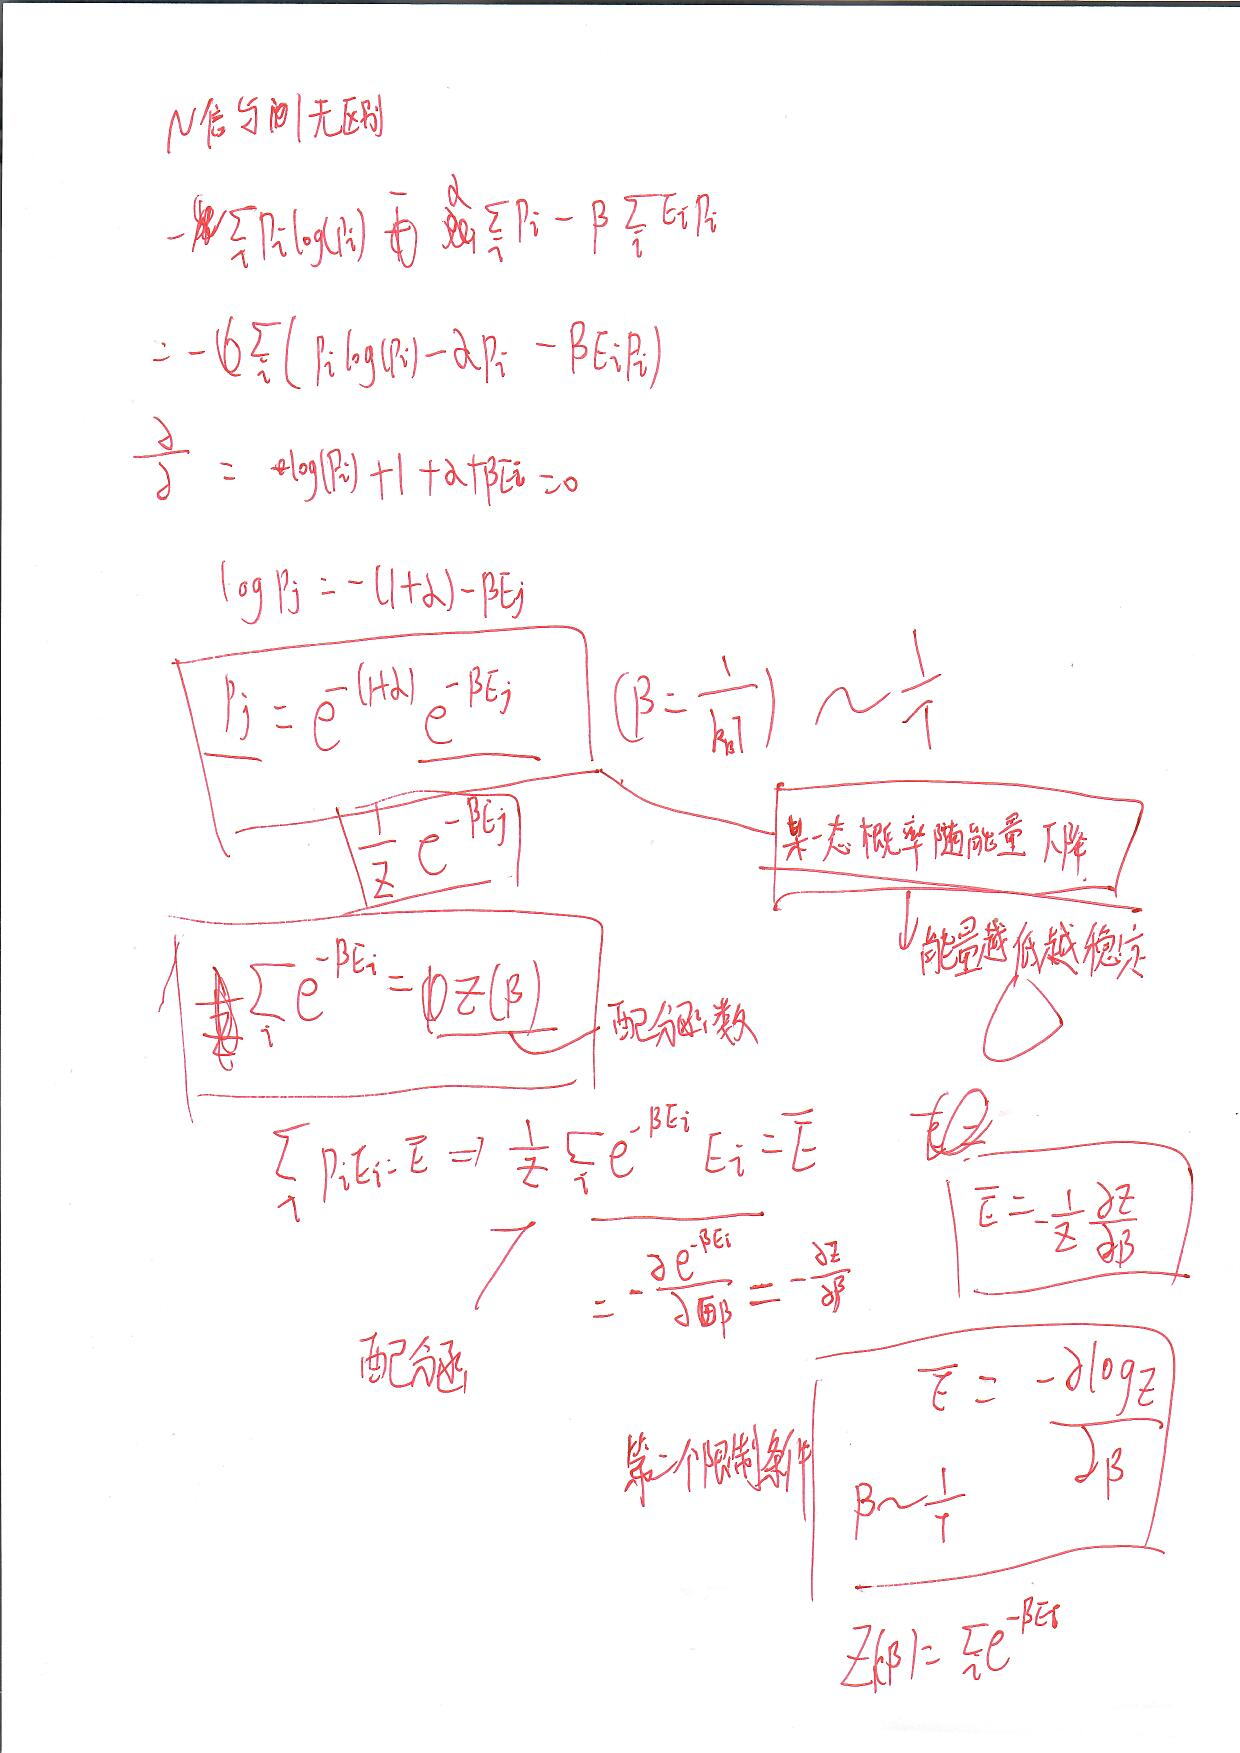 N信与间无区别
-∑_i P_i log(P_i) - α ∑_i P_i - β ∑_i E_i P_i
= -∑_i ( P_i log(P_i) - αP_i - βE_i P_i )
∂/∂ = log(P_i) + 1 + α + βE_i = 0
log P_j = -(1+α) - βE_j
P_j = e^{-(1+α)} e^{-βE_j} (β = 1/(k_B T)) ~ 1/T
1/Z e^{-βE_j}
某一态概率随能量下降
能量越低越稳定
∑_i e^{-βE_i} = Z(β)
配分函数
∑_i P_i E_i = Ē ⇒ 1/Z ∑_i e^{-βE_i} E_i = Ē
Ē = -1/Z ∂Z/∂β
= -∂e^{-βE_i}/∂β = -∂Z/∂β
配分函
第二个限制条件
Ē = -∂log Z/∂β
β ~ 1/T
Z(β) = ∑_i e^{-βE_i}